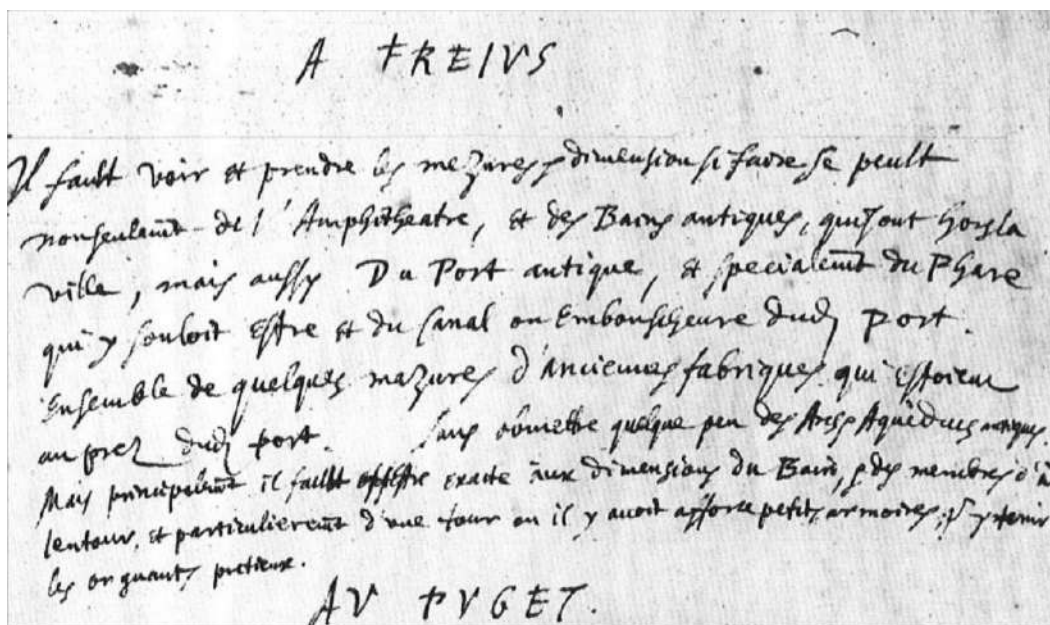 A FREIVS
Il fault voir et prendre les mezures et dimension si faire se peult
nonseulemt de l'Amphitheatre, et des Bains antiques, qui sont hors la
ville, mais aussy Du Port antique, et specialemt du Phare
qui y souloit estre et du Canal ou Embouscheure dud port.
Ensemble de quelques mazures d'anciennes fabriques qui estoient
auprez dud port. sans obmettre quelque peu des Aqueducs antiques.
Mais principalemt il fault estre exacte aux dimensions du Bain, et des membres d'a
lentour, et particulieremt d'une tour ou il y avoit petits armoires, pr y tenir
les onguants pretieux.
AV PVGET.